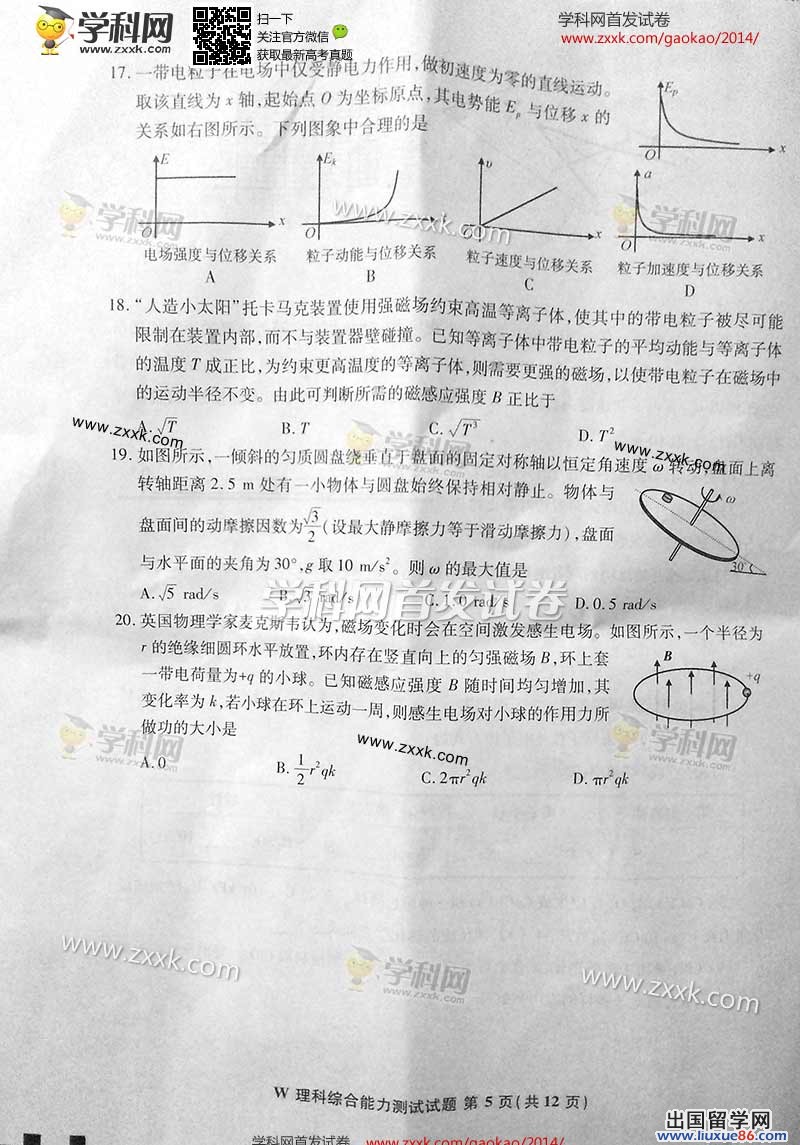 学科网
www.zxxk.com
扫一下
关注官方微信
获取最新高考真题
学科网首发试卷
www.zxxk.com/gaokao/2014/
17. 一带电粒子在电场中仅受静电力作用,做初速度为零的直线运动。
取该直线为 x 轴,起始点 O 为坐标原点,其电势能 Eₚ 与位移 x 的
关系如右图所示。下列图象中合理的是
Eₚ
O
x
E
O
x
电场强度与位移关系
A
Eₖ
O
粒子动能与位移关系
B
υ
O
x
粒子速度与位移关系
C
a
O
x
粒子加速度与位移关系
D
学科网
www.zxxk.com
18. “人造小太阳”托卡马克装置使用强磁场约束高温等离子体,使其中的带电粒子被尽可能
限制在装置内部,而不与装置器壁碰撞。已知等离子体中带电粒子的平均动能与等离子体
的温度 T 成正比,为约束更高温度的等离子体,则需要更强的磁场,以使带电粒子在磁场中
的运动半径不变。由此可判断所需的磁感应强度 B 正比于
A. √T B. T C. √T³ D. T²
www.zxxk.com
学科网
www.zxxk.com
19. 如图所示,一倾斜的匀质圆盘绕垂直于盘面的固定对称轴以恒定角速度 ω 转动,盘面上离
转轴距离 2.5 m 处有一小物体与圆盘始终保持相对静止。物体与
盘面间的动摩擦因数为√3/2(设最大静摩擦力等于滑动摩擦力),盘面
与水平面的夹角为30°,g 取 10 m/s²。则 ω 的最大值是
ω
30°
A. √5 rad/s B. √3 rad/s C. 1.0 rad/s D. 0.5 rad/s
学科网首发试卷
20. 英国物理学家麦克斯韦认为,磁场变化时会在空间激发感生电场。如图所示,一个半径为
r 的绝缘细圆环水平放置,环内存在竖直向上的匀强磁场 B,环上套
一带电荷量为+q 的小球。已知磁感应强度 B 随时间均匀增加,其
变化率为 k,若小球在环上运动一周,则感生电场对小球的作用力所
做功的大小是
B
+q
A. 0 B. 1/2 r²qk C. 2πr²qk D. πr²qk
学科网
www.zxxk.com
学科网
www.zxxk.com
学科网
www.zxxk.com
W 理科综合能力测试试题 第 5 页(共 12 页)
学科网首发试卷 www.zxxk.com/gaokao/2014/
出国留学网
www.liuxue86.com